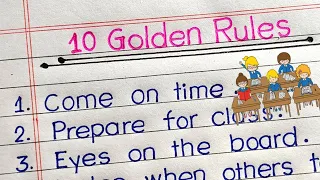 10 Golden Rules
1. Come on time
2. Prepare for class.
3. Eyes on the board.
when others